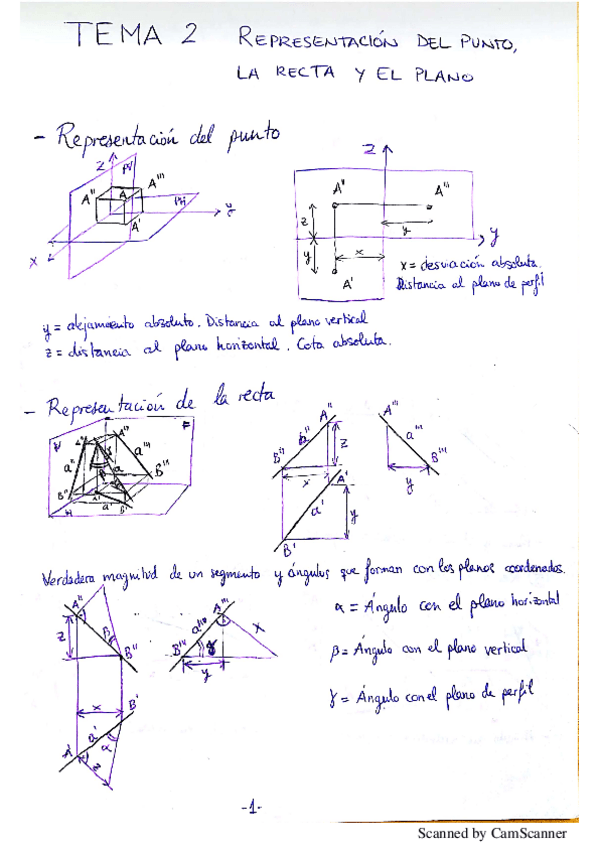 TEMA 2 REPRESENTACIÓN DEL PUNTO,
LA RECTA Y EL PLANO
- Representación del punto
Z PV
A'' A A''' PH
A'
X Y
Z
A'' A'''
z y
Y
y x
A'
x = desviación absoluta.
Distancia al plano de perfil
y = alejamiento absoluto. Distancia al plano vertical
z = distancia al plano horizontal. Cota absoluta.
- Representación de la recta
V A'' P
a'' a a'''
B'' B'''
H A' a' B'
A'' A'''
b'' z a'''
B'' B'''
x A' y
a' y
B'
Verdadera magnitud de un segmento y ángulos que forman con los planos coordenados.
A'' A'''
a''' x
z β B'' B''' γ
y
x B'
a' α
A' z
α = Ángulo con el plano horizontal
β = Ángulo con el plano vertical
γ = Ángulo con el plano de perfil
-1-
Scanned by CamScanner